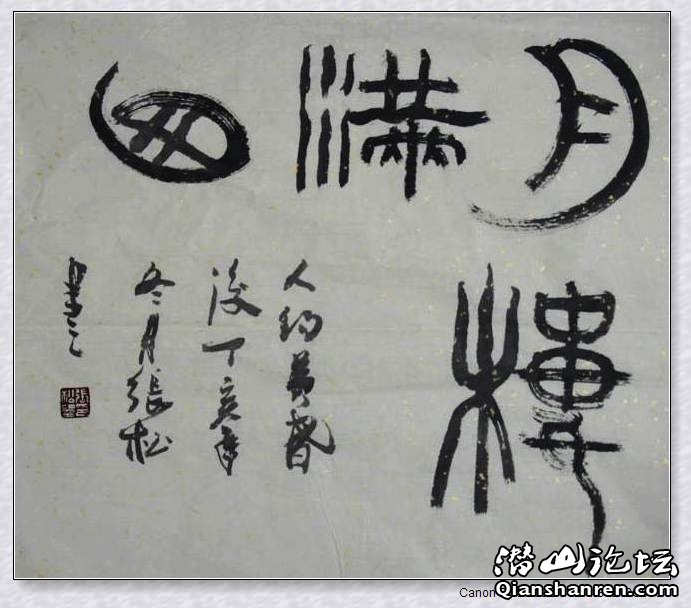 月滿西
樓
人約黃昏
後丁亥年
冬月張松
書之
潜山论坛
Qianshanren.com
Canon